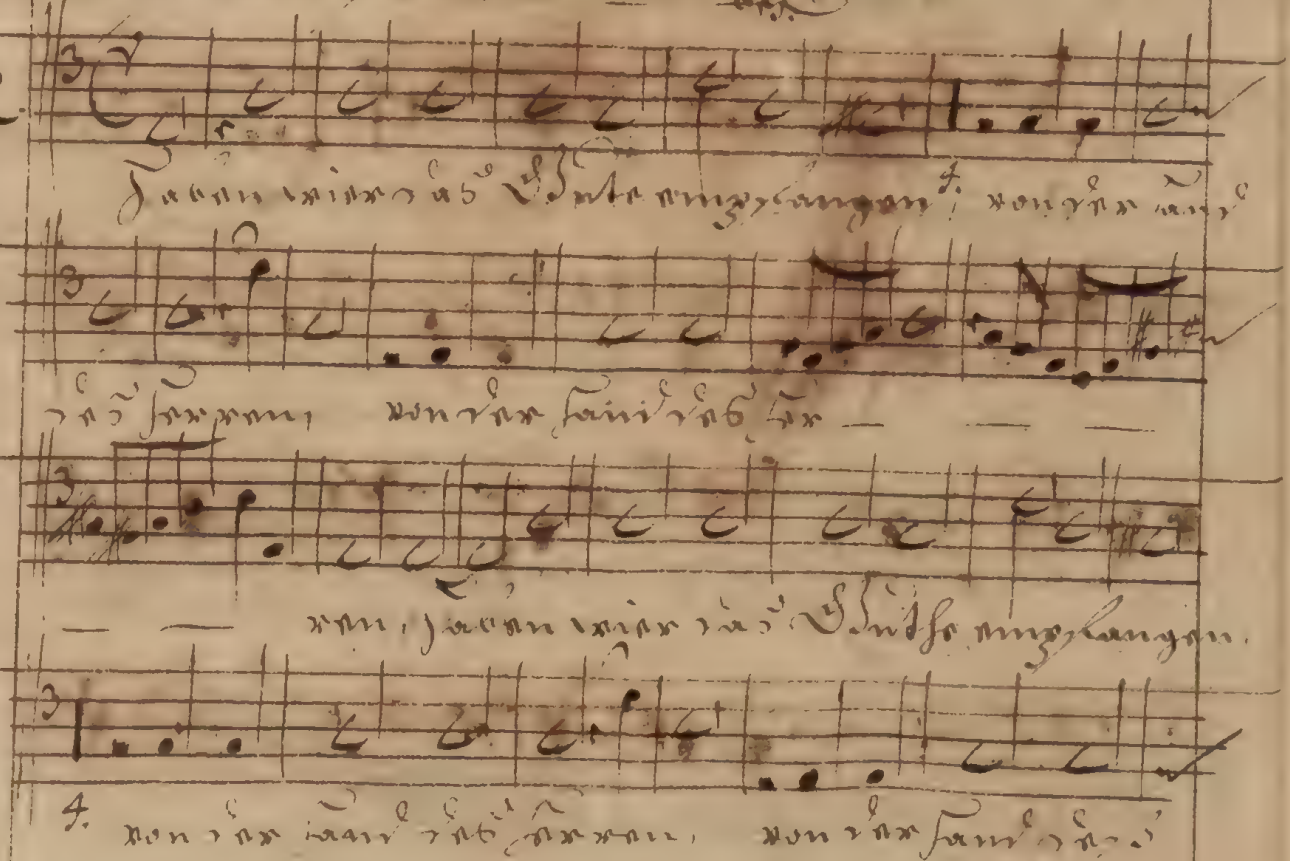 Haben wier das Guute empfangen, von der Hand
des Herren, von der Hand des Her — — —
— — ren, Haben wier das Guthe empfangen.
4. von der Hand des Herren, von der Hand des